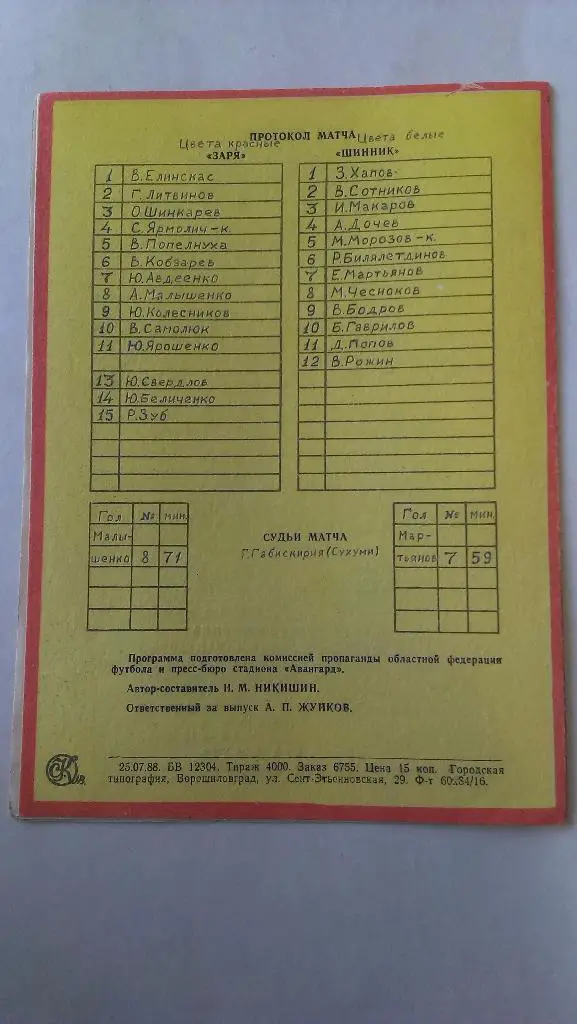 ПРОТОКОЛ МАТЧА
Цвета красные
Цвета белые
«ЗАРЯ»
1 В.Елинскас
2 Г.Литвинов
3 О.Шинкарев
4 С.Ярмолич-к.
5 В.Попелнуха
6 В.Кобзарев
7 Ю.Авдеенко
8 А.Малышенко
9 Ю.Колесников
10 В.Самолюк
11 Ю.Ярошенко
13 Ю.Свердлов
14 Ю.Беличенко
15 Р.Зуб
«ШИННИК»
1 З.Хапов
2 В.Сотников
3 И.Макаров
4 А.Дочев
5 М.Морозов-к.
6 Р.Билялетдинов
7 Е.Мартьянов
8 М.Чесноков
9 В.Бодров
10 Б.Гаврилов
11 Д.Попов
12 В.Рожин
Гол № мин.
Малы-
шенко 8 71
СУДЬИ МАТЧА
Г.Габискирия (Сухуми)
Гол № мин.
Мар-
тьянов 7 59
Программа подготовлена комиссией пропаганды областной федерации
футбола и пресс-бюро стадиона «Авангард».
Автор-составитель И. М. НИКИШИН.
Ответственный за выпуск А. П. ЖУЙКОВ.
25.07.88. БВ 12304. Тираж 4000. Заказ 6755. Цена 15 коп. Городская
типография, Ворошиловград, ул. Сент-Этьенновская, 29. Ф-т 60х84/16.